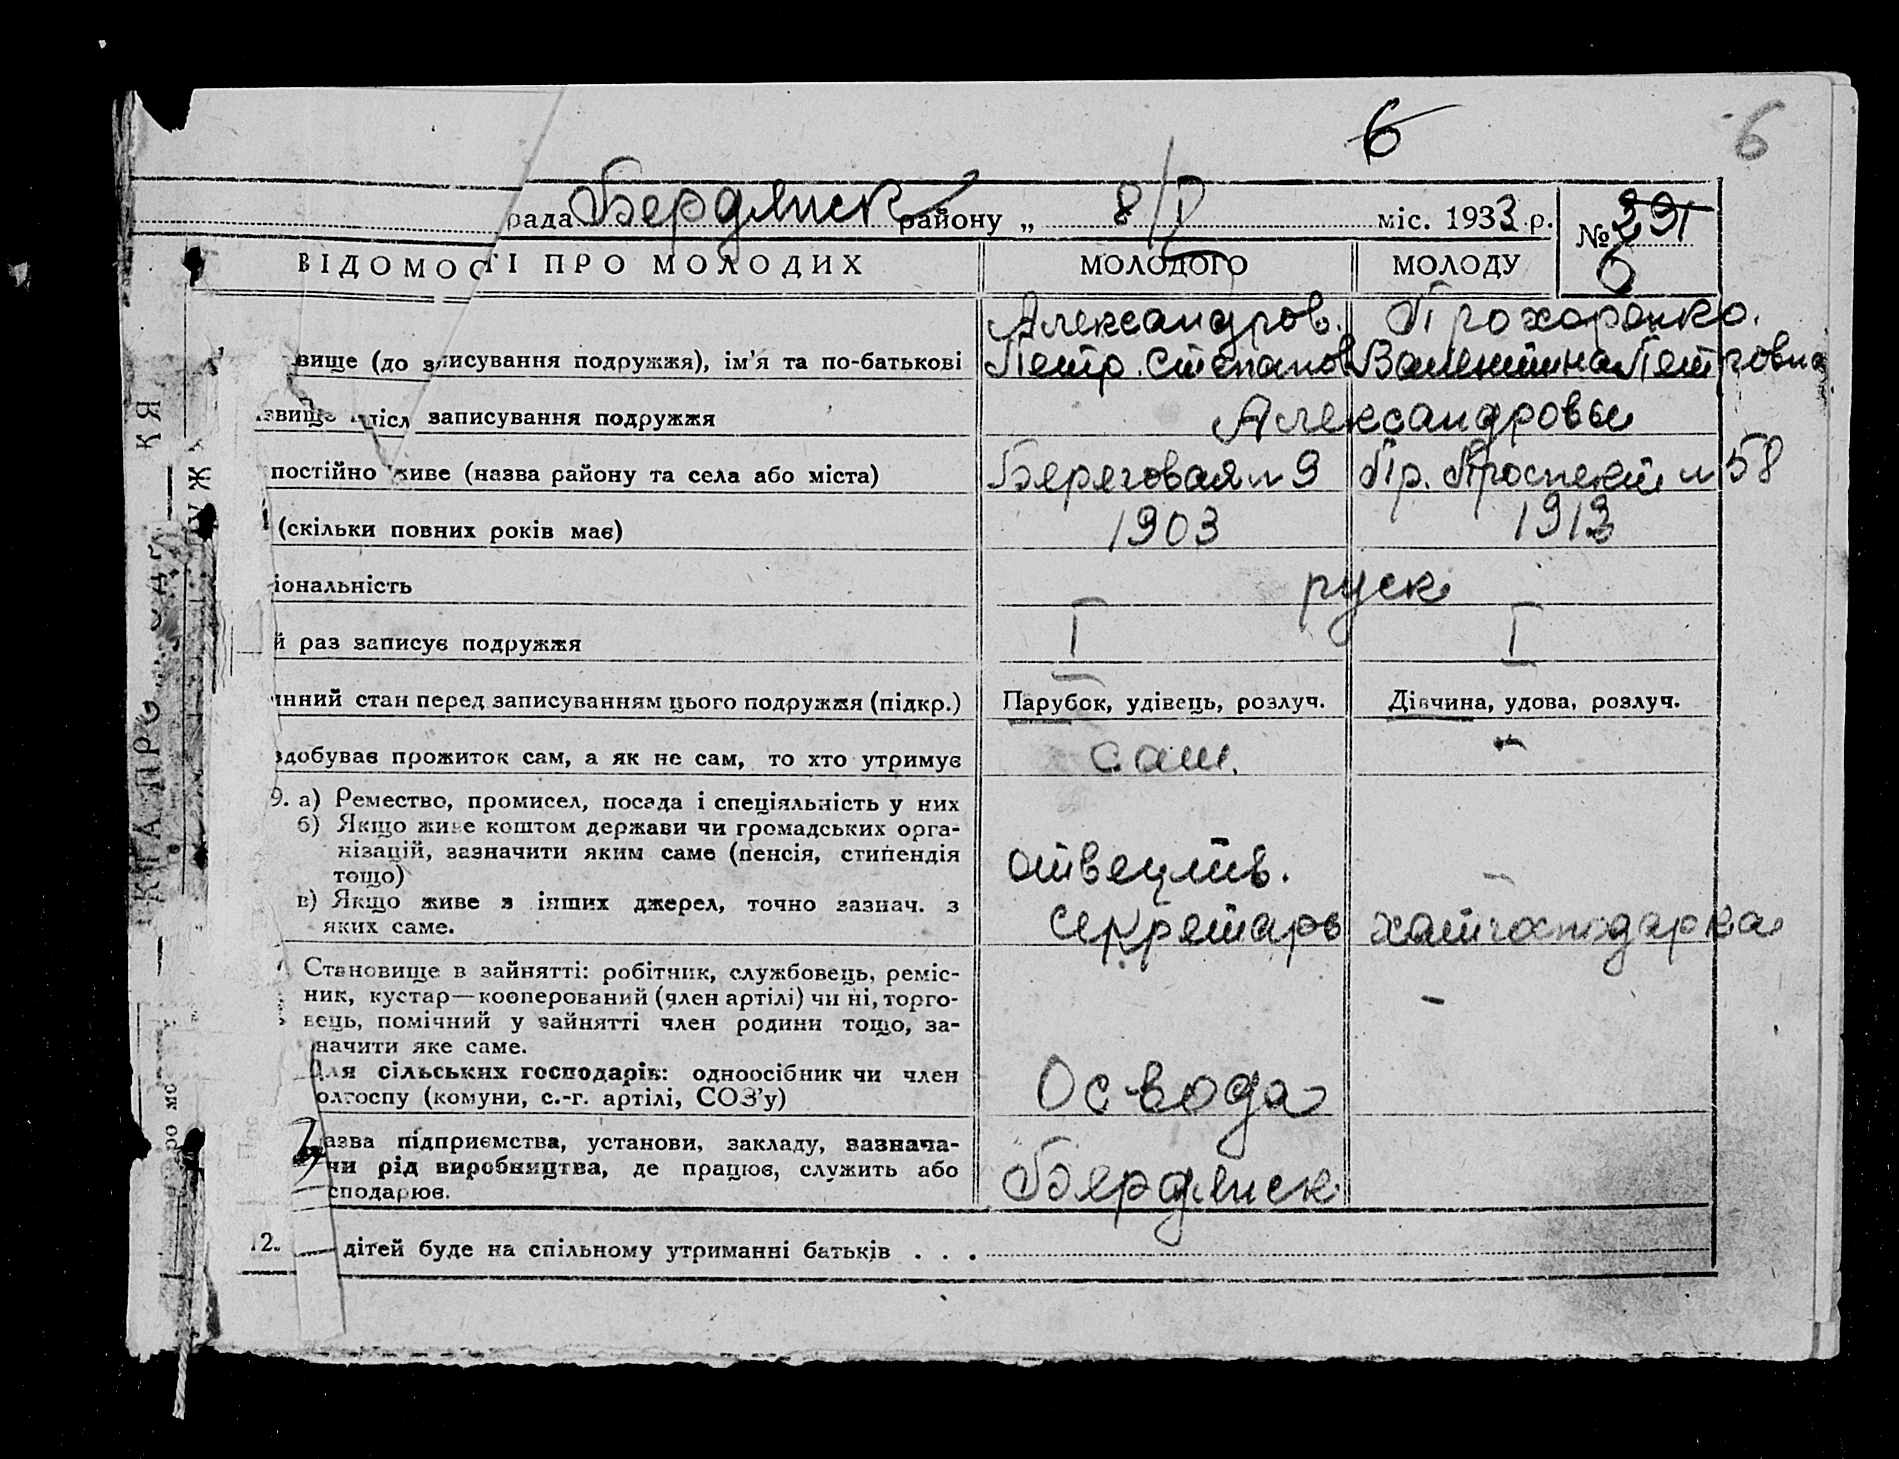 6 6
рада Бердянск району „ 8/I міс. 1933 р. № 391
6
ВІДОМОСТІ ПРО МОЛОДИХ МОЛОДОГО МОЛОДУ
Александров. Прохоренко.
вище (до записування подружжя), ім'я та по-батькові Петр. Степанов Валентина Петровна
звище після записування подружжя Александровы
постійно живе (назва району та села або міста) Береговая № 9 Пр. Проспект № 58
(скільки повних років має) 1903 1913
іональність руск
й раз записує подружжя I I
инний стан перед записуванням цього подружжя (підкр.) Парубок, удівець, розлуч. Дівчина, удова, розлуч.
здобуває прожиток сам, а як не сам, то хто утримує сам. -
9. а) Ремество, промисел, посада і спеціяльність у них
б) Якщо живе коштом держави чи громадських орга-
нізацій, зазначити яким саме (пенсія, стипендія ответств.
тощо)
в) Якщо живе з інших джерел, точно зазнач. з секретарь хатгосподарка
яких саме.
Становище в зайнятті: робітник, службовець, реміс-
ник, кустар—кооперований (член артілі) чи ні, торго- -
вець, помічний у зайнятті член родини тощо, за-
начити яке саме.
Для сільських господарів: одноосібник чи член Освода
олгоспу (комуни, с.-г. артілі, СОЗ'у)
азва підприємства, установи, закладу, зазнача-
чи рід виробництва, де працює, служить або Бердянск
сподарює.
12. дітей буде на спільному утриманні батьків . . .